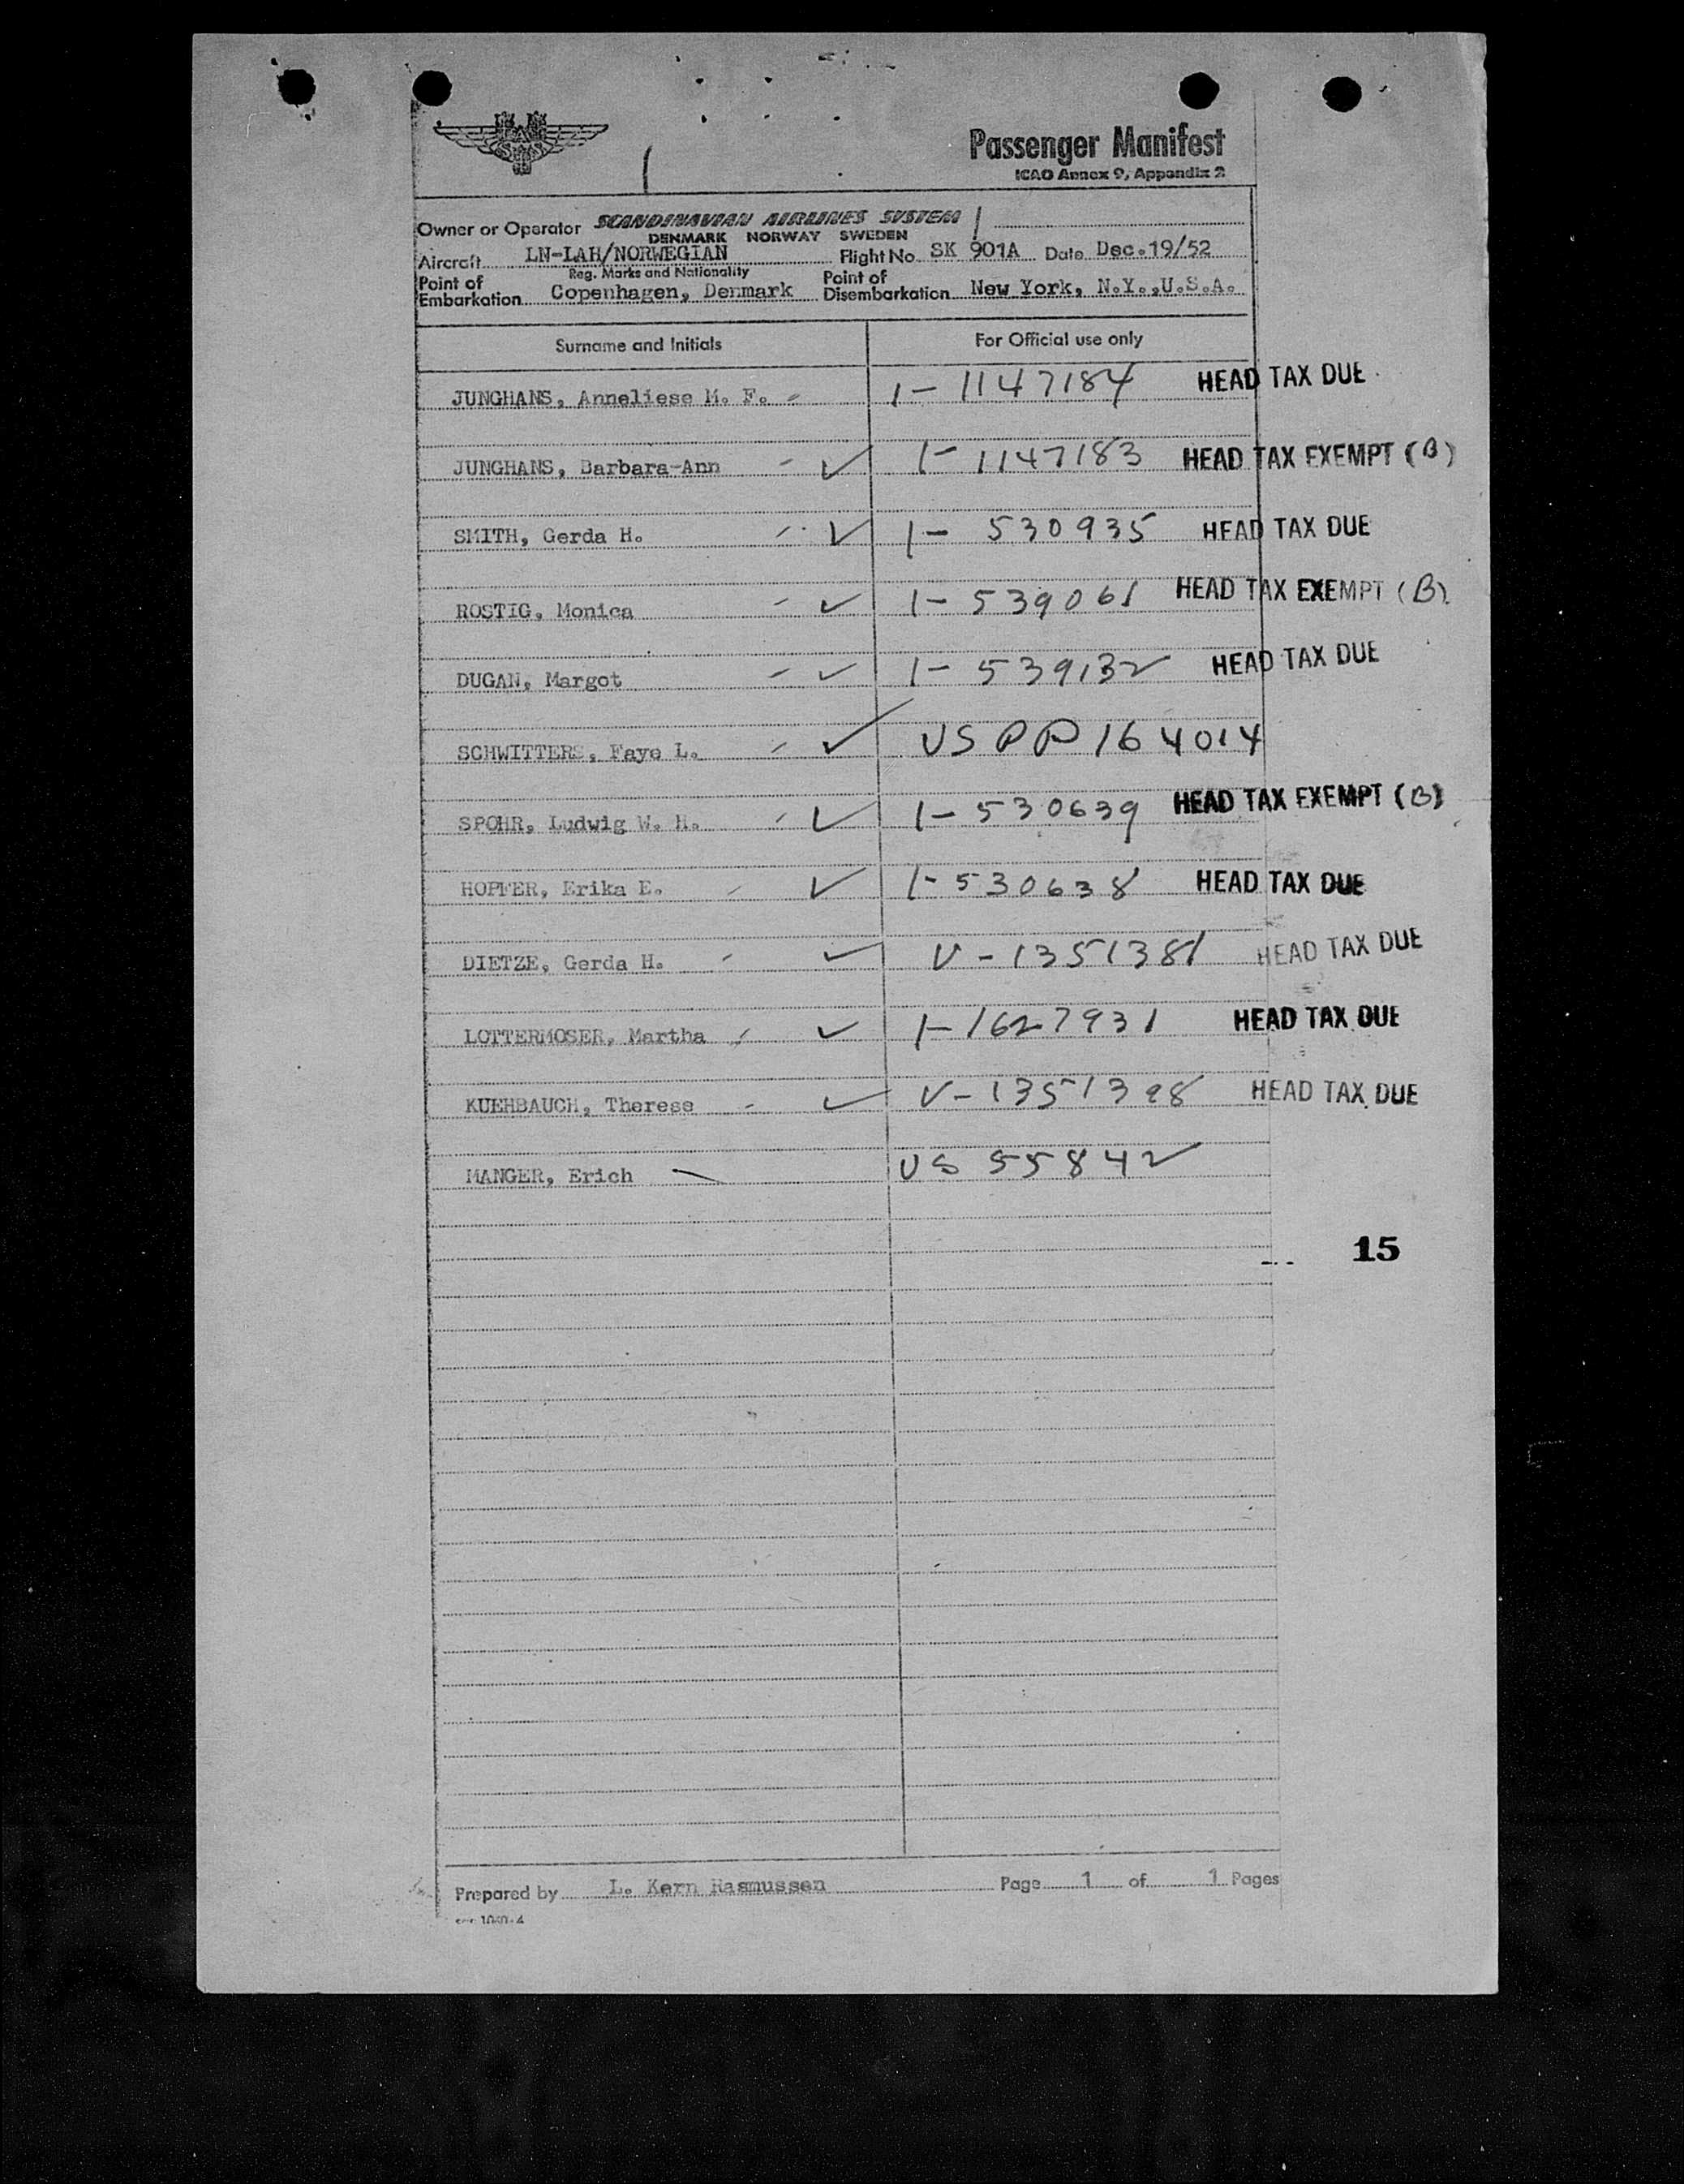 SAS
Passenger Manifest
ICAO Annex 9, Appendix 2
Owner or Operator SCANDINAVIAN AIRLINES SYSTEM
DENMARK NORWAY SWEDEN
Aircraft LN-LAH/NORWEGIAN Flight No. SK 901A Date Dec.19/52
Reg. Marks and Nationality
Point of Embarkation Copenhagen, Denmark Point of Disembarkation New York, N.Y.,U.S.A.
Surname and Initials For Official use only
JUNGHANS, Anneliese M. F. 1-1147184 HEAD TAX DUE
JUNGHANS, Barbara-Ann 1-1147183 HEAD TAX EXEMPT (B)
SMITH, Gerda H. 1-530935 HEAD TAX DUE
ROSTIG, Monica 1-539061 HEAD TAX EXEMPT (B)
DUGAN, Margot 1-539132 HEAD TAX DUE
SCHWITTERS, Faye L. US PP 164014
SPOHR, Ludwig W. H. 1-530639 HEAD TAX EXEMPT (B)
HOPFER, Erika E. 1-530638 HEAD TAX DUE
DIETZE, Gerda H. V-1351381 HEAD TAX DUE
LOTTERMOSER, Martha 1-1627931 HEAD TAX DUE
KUEHBAUCH, Therese V-1351398 HEAD TAX DUE
MANGER, Erich US 55842
15
Prepared by L. Kern Rasmussen Page 1 of 1 Pages